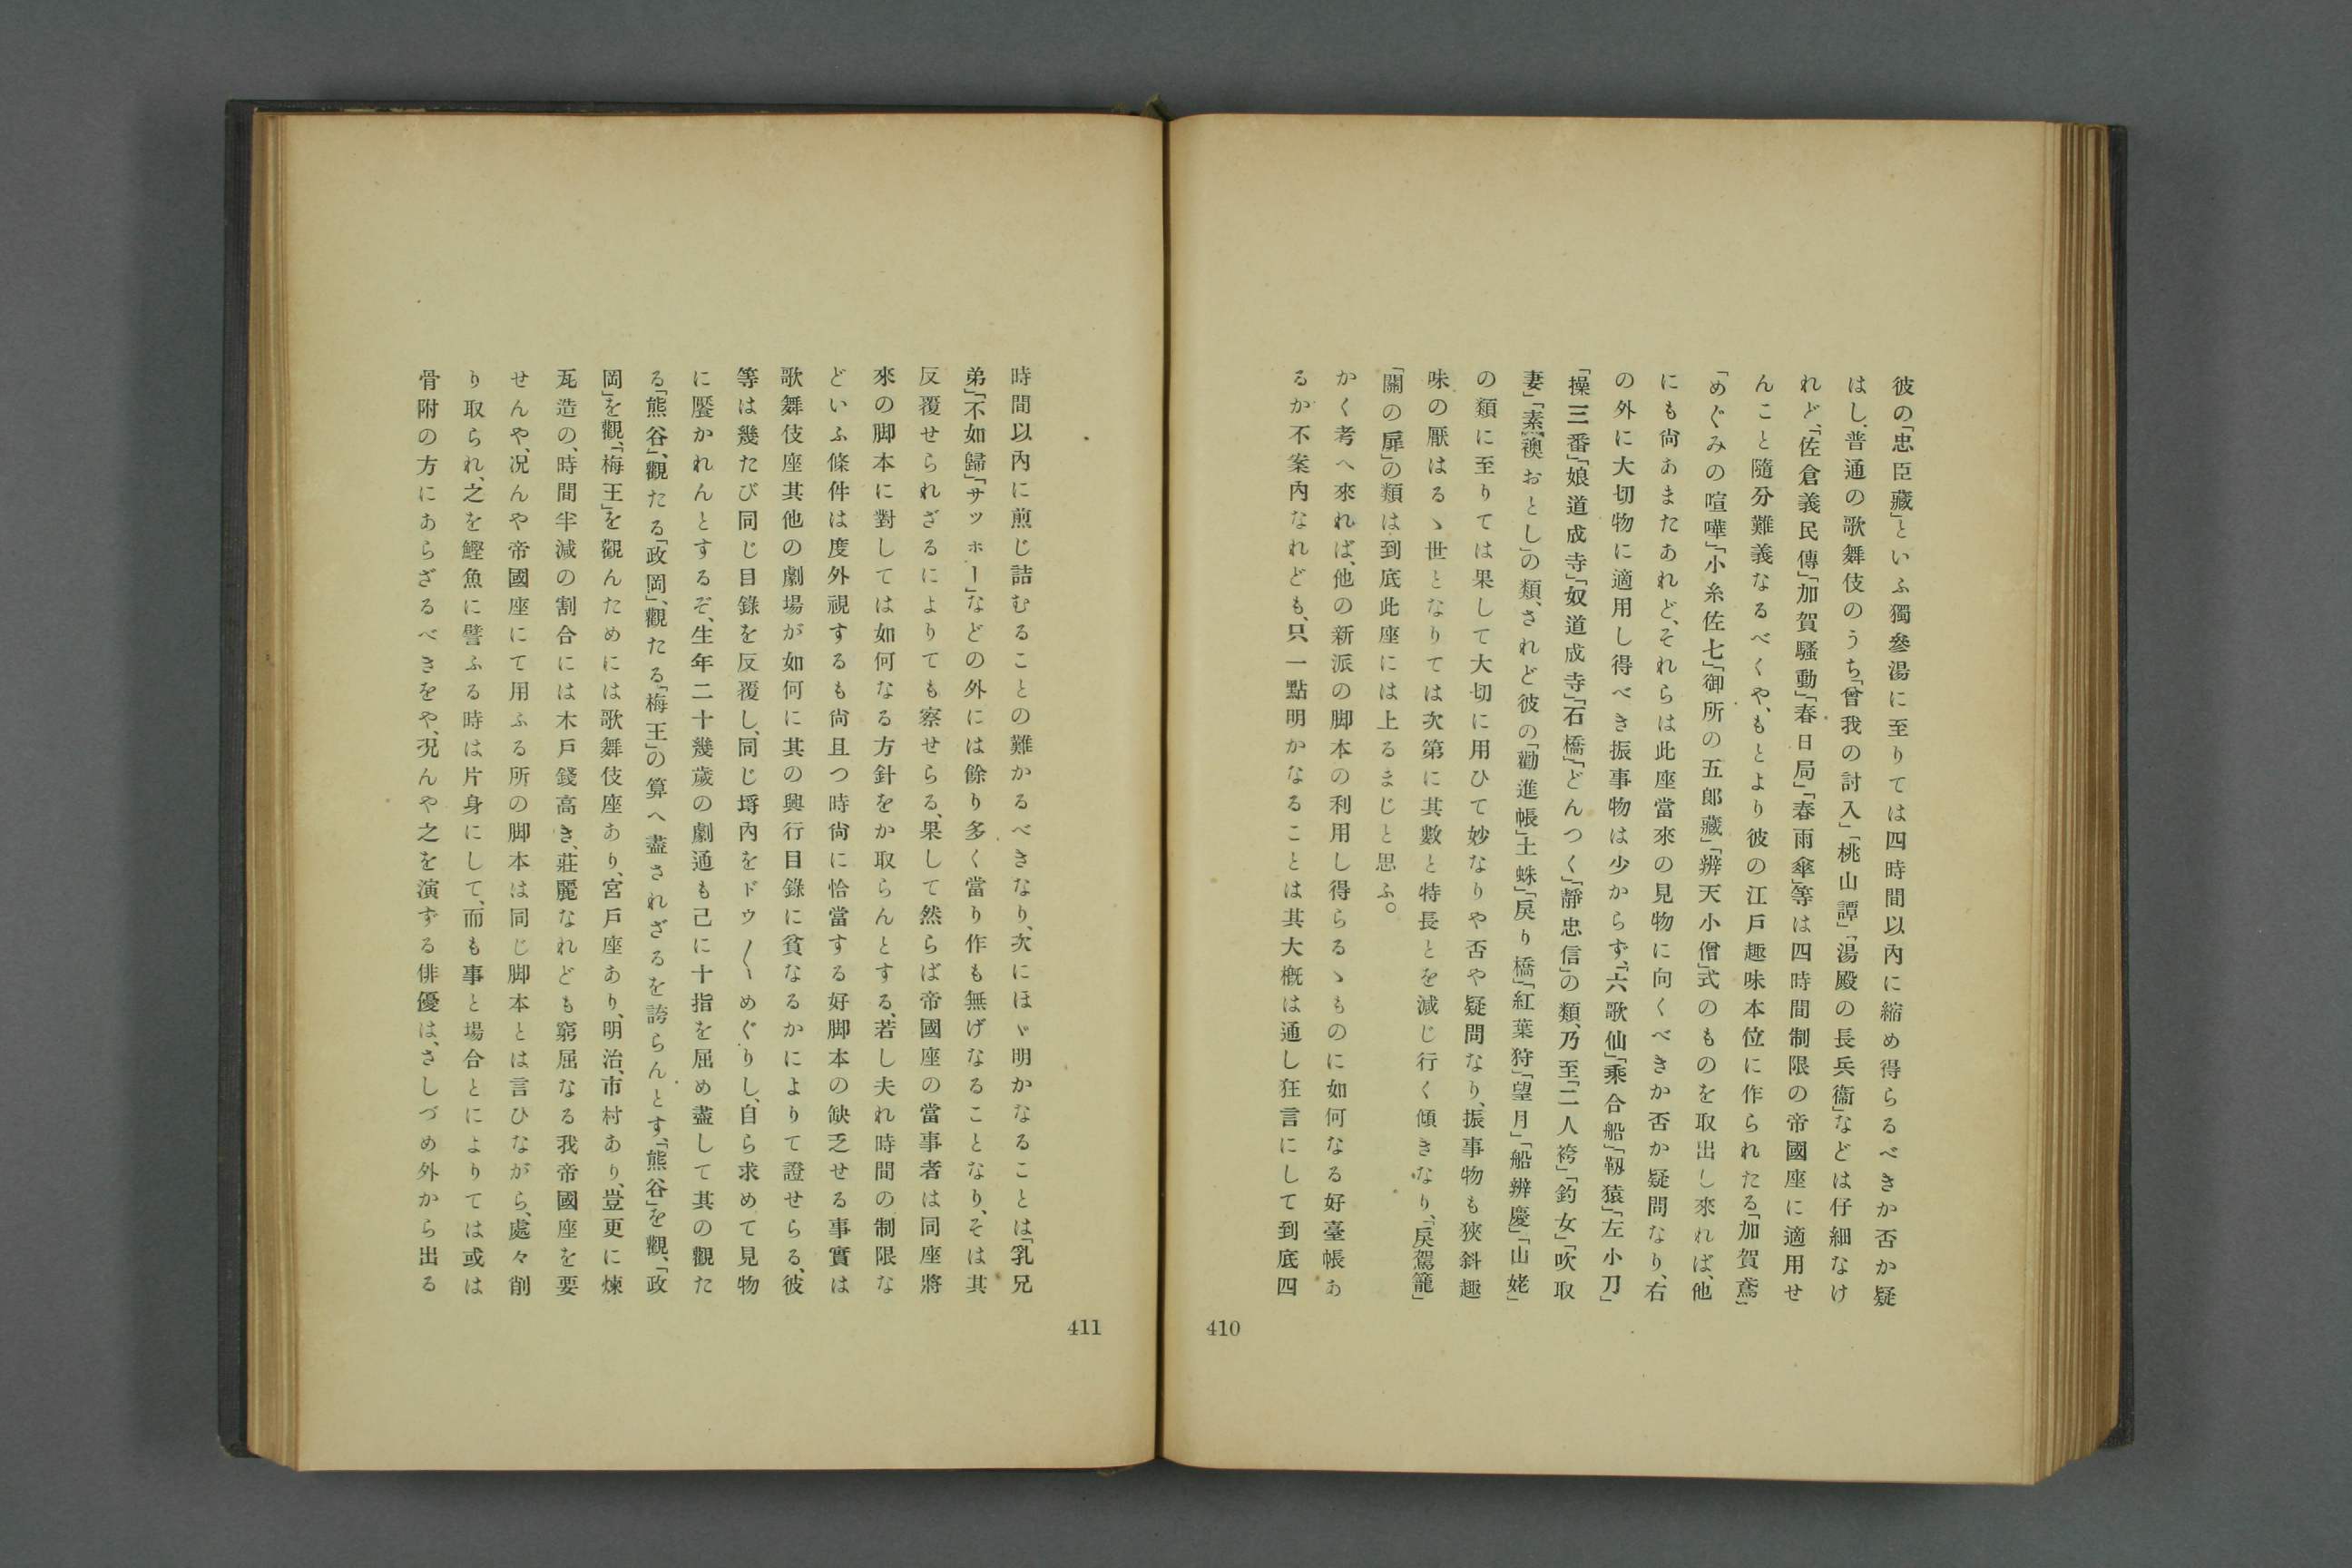 彼の「忠臣藏」といふ獨參湯に至りては四時間以內に縮め得らるべきか否か疑
はし、普通の歌舞伎のうち「曾我の討入」「桃山譚」「湯殿の長兵衞」などは仔細なけ
れど、「佐倉義民傳」「加賀騷動」「春日局」「春雨傘」等は四時間制限の帝國座に適用せ
んこと隨分難義なるべくや、もとより彼の江戶趣味本位に作られたる「加賀鳶」
「めぐみの喧嘩」「小糸佐七」「御所の五郎藏」「辨天小僧」式のものを取出し來れば、他
にも尙あまたあれど、それらは此座當來の見物に向くべきか否か疑問なり、右
の外に大切物に適用し得べき振事物は少からず、「六歌仙」「乘合船」「靱猿」「左小刀」
「操三番」「娘道成寺」「奴道成寺」「石橋」「どんつく」「靜忠信」の類、乃至「二人袴」「釣女」「吹取
妻」「素襖おとし」の類、されど彼の「勸進帳」「土蛛」「戾り橋」「紅葉狩」「望月」「船辨慶」「山姥」
の類に至りては果して大切に用ひて妙なりや否や疑問なり、振事物も狹斜趣
味の厭はるゝ世となりては次第に其數と特長とを減じ行く傾きなり、「戾駕籠」
「關の扉」の類は到底此座には上るまじと思ふ。
かく考へ來れば、他の新派の脚本の利用し得らるゝものに如何なる好臺帳あ
るか不案內なれども、只一點明かなることは其大槪は通し狂言にして到底四
410
時間以內に煎じ詰むることの難かるべきなり、次にほゞ明かなることは「乳兄
弟」「不如歸」「サッホー」などの外には餘り多く當り作も無げなることなり、そは其
反覆せられざるによりても察せらる、果して然らば帝國座の當事者は同座將
來の脚本に對しては如何なる方針をか取らんとする、若し夫れ時間の制限な
どいふ條件は度外視するも尙且つ時尙に恰當する好脚本の缺乏せる事實は
歌舞伎座其他の劇場が如何に其の興行目錄に貧なるかによりて證せらる、彼
等は幾たび同じ目錄を反覆し、同じ埓內をドウ〳〵めぐりし、自ら求めて見物
に饜かれんとするぞ、生年二十幾歲の劇通も己に十指を屈め盡して其の觀た
る「熊谷」、觀たる「政岡」、觀たる「梅王」の算へ盡されざるを誇らんとす、「熊谷」を觀、「政
岡」を觀、「梅王」を觀んためには歌舞伎座あり、宮戶座あり、明治、市村あり、豈更に煉
瓦造の、時間半減の割合には木戶錢高き、莊麗なれども窮屈なる我帝國座を要
せんや、况んや帝國座にて用ふる所の脚本は同じ脚本とは言ひながら、處々削
り取られ、之を鰹魚に譬ふる時は片身にして、而も事と場合とによりては或は
骨附の方にあらざるべきをや、况んや之を演ずる俳優は、さしづめ外から出る
411